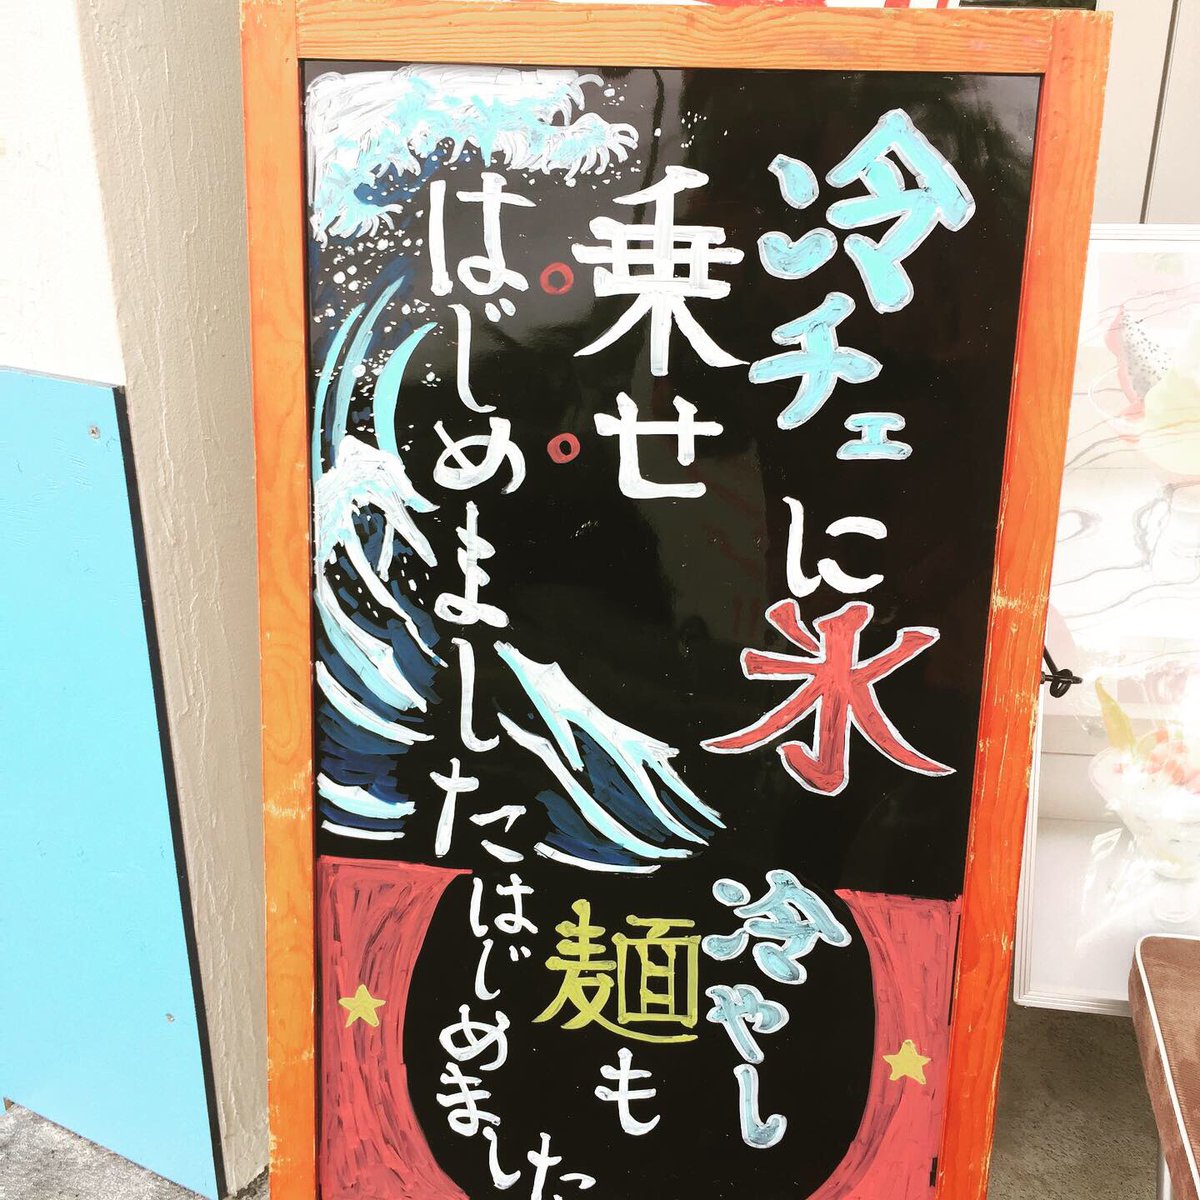 冷チェに氷
乗せ
はじめました
冷やし
麺も
はじめました